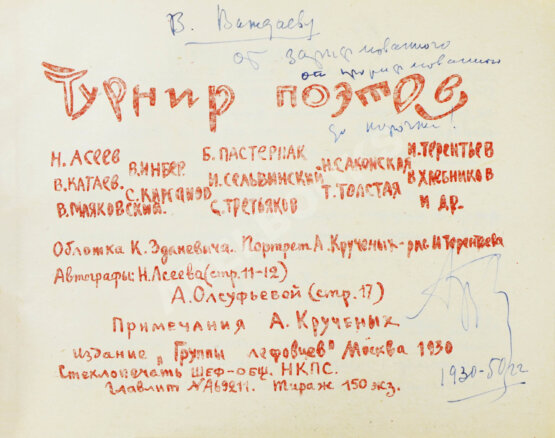 В. Важдаеву
от зарифмованного
Турнир поэтов
до корочки!
Н. АСЕЕВ В. ИНБЕР. Б. ПАСТЕРНАК Н. САКОНСКАЯ И. ТЕРЕНТЬЕВ
В. КАТАЕВ. С. КИРСАНОВ И. СЕЛЬВИНСКИЙ Т. ТОЛСТАЯ В. ХЛЕБНИКОВ
В. МАЯКОВСКИЙ. С. ТРЕТЬЯКОВ И ДР.
Обложка К. Зданевича. Портрет А. Крученых - рис. И. Терентьева
Автографы: Н. Асеева (стр. 11-12)
А. Олсуфьевой (стр. 17)
Примечания А. Крученых
Издание „Группы лефовцев" Москва 1930
Стеклопечать ШЕФ-ОБЩ. НКПС.
Главлит № А69211. Тираж 150 экз.
1930-50 гг